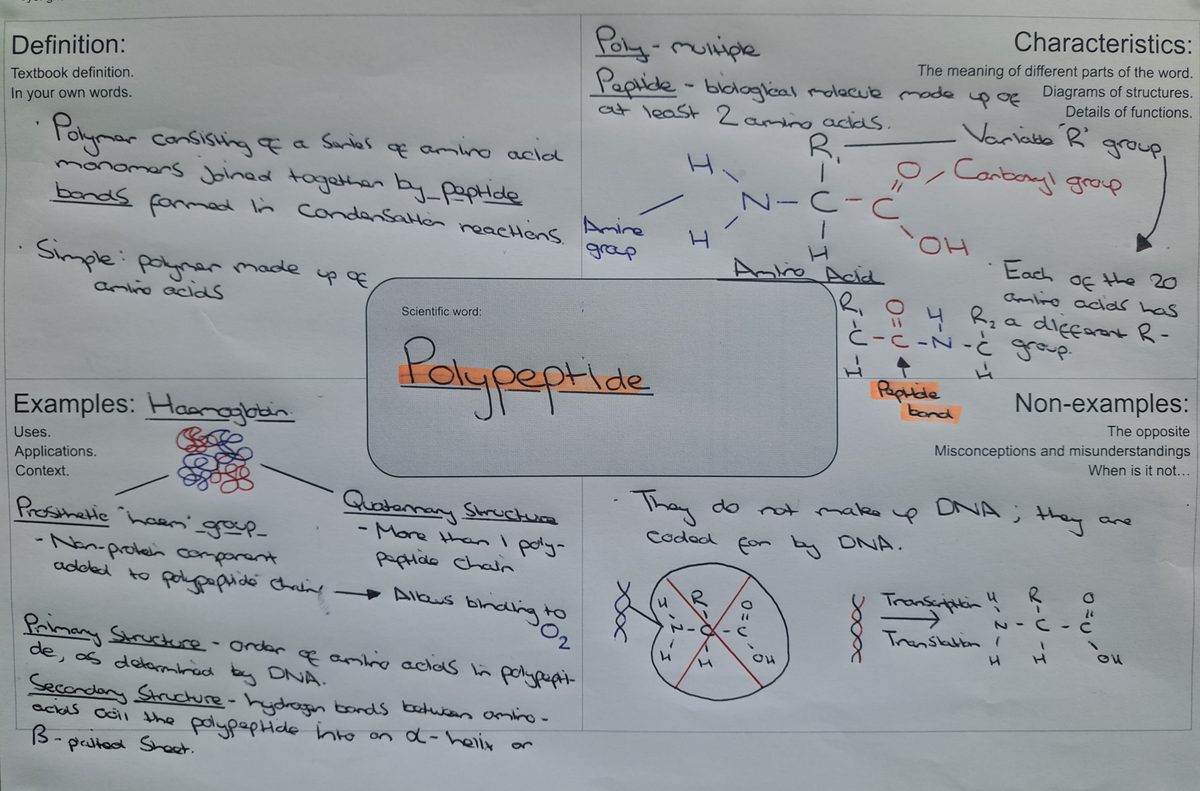 Definition:
Textbook definition.
In your own words.
· Polymer consisting of a series of amino acid
monomers joined together by peptide
bonds formed in condensation reactions.
· Simple: polymer made up of
amino acids
Characteristics:
The meaning of different parts of the word.
Diagrams of structures.
Details of functions.
Poly - multiple
Peptide - biological molecule made up of
at least 2 amino acids.
Variable 'R' group
Carboxyl group
Amine
group
R1
H
O
N - C - C
H
H
OH
Amino Acid
· Each of the 20
amino acids has
a different R-
group.
R1 O H R2
C - C - N - C
H H
Peptide
bond
Scientific word:
Polypeptide
Examples: Haemoglobin
Uses.
Applications.
Context.
Prosthetic 'haem' group
- Non-protein component
added to polypeptide chains → Allows binding to
O2
Quaternary Structure
- More than 1 poly-
peptide chain
Primary Structure - order of amino acids in polypepti-
de, as determined by DNA.
Secondary Structure - hydrogen bonds between amino-
acids coil the polypeptide into an α-helix or
β-pleated sheet.
Non-examples:
The opposite
Misconceptions and misunderstandings
When is it not...
· They do not make up DNA; they are
coded for by DNA.
H R O
N - C - C
H H OH
Transcription
Translation
H R O
N - C - C
H H OH